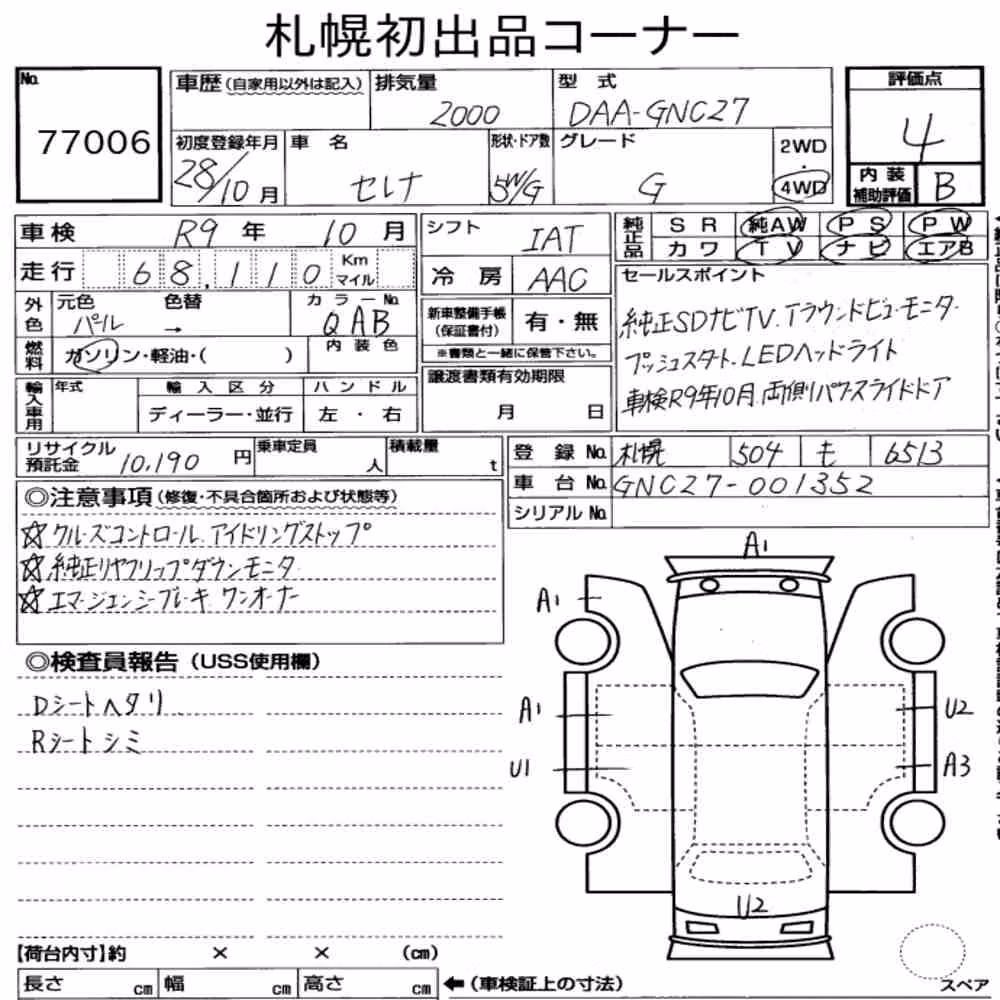 札幌初出品コーナー
No.
77006
車歴(自家用以外は記入)
排気量
2000
型 式
DAA-GNC27
評価点
4
初度登録年月
28/10月
車 名
セレナ
形状・ドア数
5W/G
グレード
G
2WD
・
4WD
内 装
補助評価
B
車検 R9年 10月
走行 68,110 Km
マイル
シフト
IAT
冷 房
AAC
純正品
SR 純AW PS PW
カワ TV ナビ エアB
セールスポイント
純正SDナビTV.Tラウンドビューモニター
プッシュスタート.LEDヘッドライト
車検R9年10月.両側パワースライドドア
外色
元色
パール
色替
→
カラーNo.
QAB
燃料
ガソリン・軽油・( )
内 装 色
新車整備手帳
(保証書付)
有・無
※書類と一緒に保管下さい。
輸入車用
年式
輸 入 区 分
ディーラー・並行
ハ ン ド ル
左 ・ 右
譲渡書類有効期限
月 日
リサイクル
預託金 10,190 円
乗車定員
人
積載量
t
登 録 No. 札幌 504 も 6513
車 台 No. GNC27-001352
シリアル No.
◎注意事項(修復・不具合箇所および状態等)
☆クルーズコントロール.アイドリングストップ
☆純正リヤフリップダウンモニター
☆エマージェンシーブレーキ.ワンオーナー
◎検査員報告(USS使用欄)
Dシートヘタリ
Rシートシミ
A1
A1
A1
U1
U2
A3
U2
【荷台内寸】約 × × (cm)
長さ cm 幅 cm 高さ cm
←(車検証上の寸法)
スペア